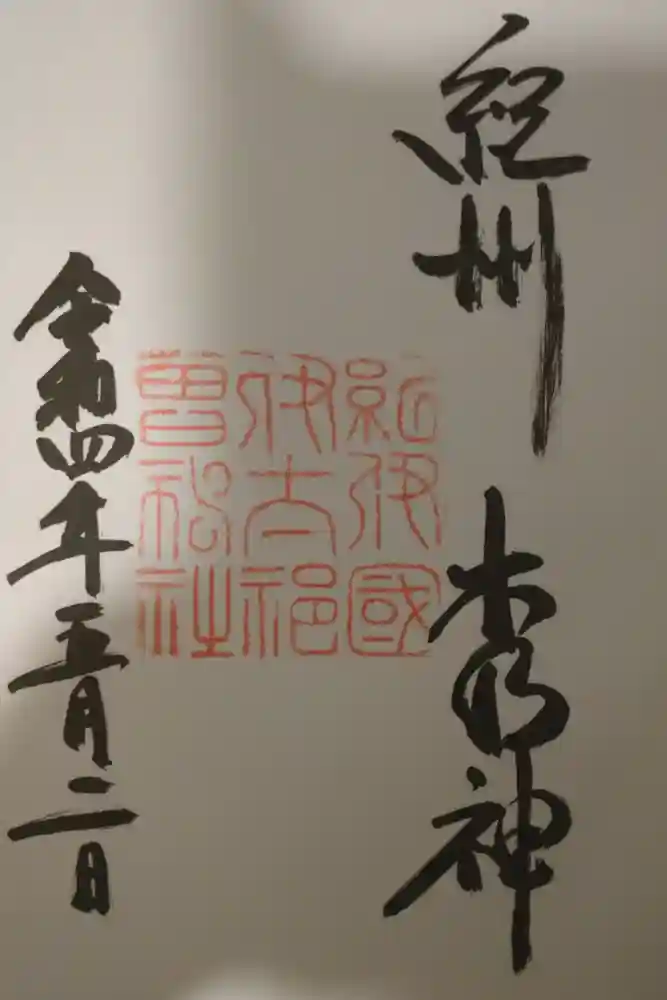 紀州 木の神
紀伊國
伊太祁
曾神社
令和四年五月二日